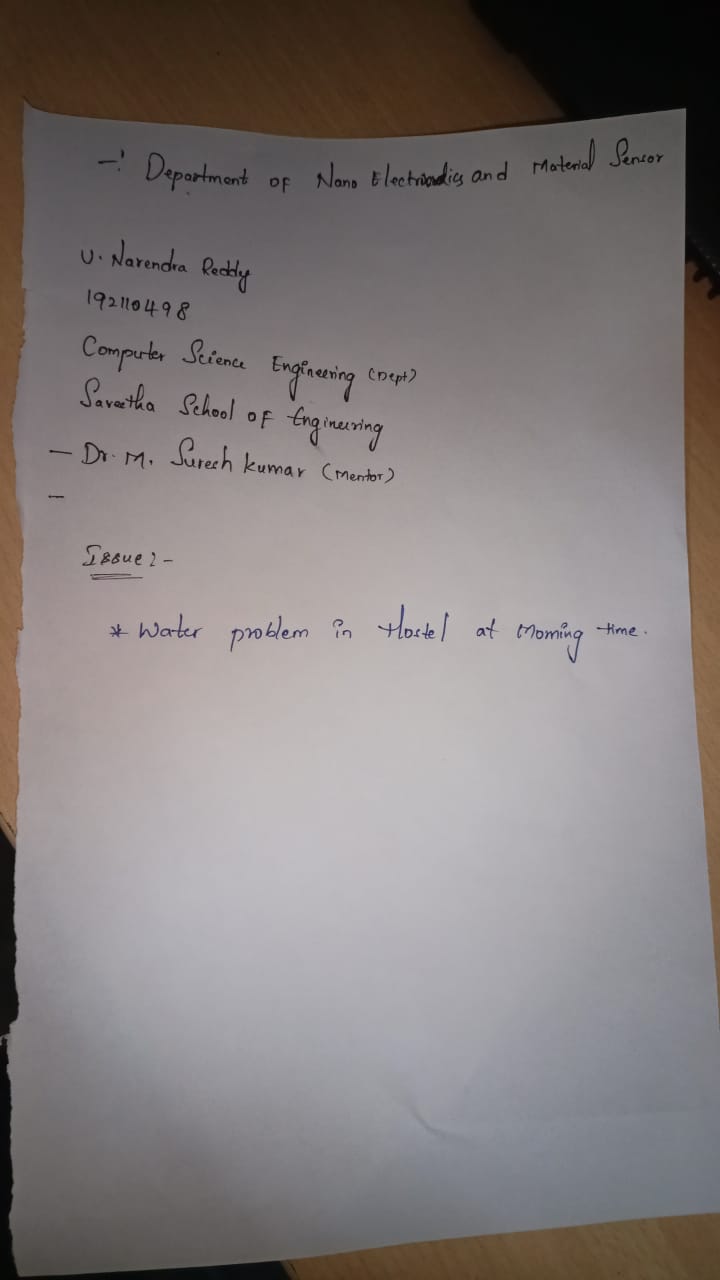 -: Department of Nano Electronics and Material Sensor
U. Narendra Reddy
192110498
Computer Science Engineering (Dept)
Saveetha School of Engineering
- Dr. M. Suresh kumar (Mentor)
-
Issue :-
* Water problem in Hostel at Morning time.